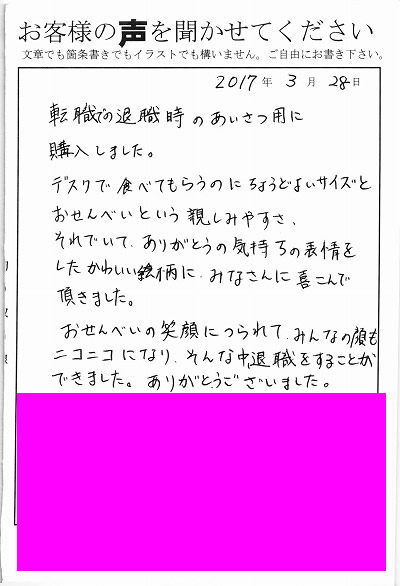 お客様の声を聞かせてください
文章でも箇条書きでもイラストでも構いません。ご自由にお書き下さい。
2017年 3月 28日
転職での退職時のあいさつ用に
購入しました。
デスクで食べてもらうのにちょうどよいサイズと
おせんべいという親しみやすさ、
それでいて、ありがとうの気持ちの表情を
したかわいい絵柄に、みなさんに喜こんで
頂きました。
おせんべいの笑顔につられて、みんなの顔も
ニコニコになり、そんな中退職をすることが
できました。ありがとうございました。